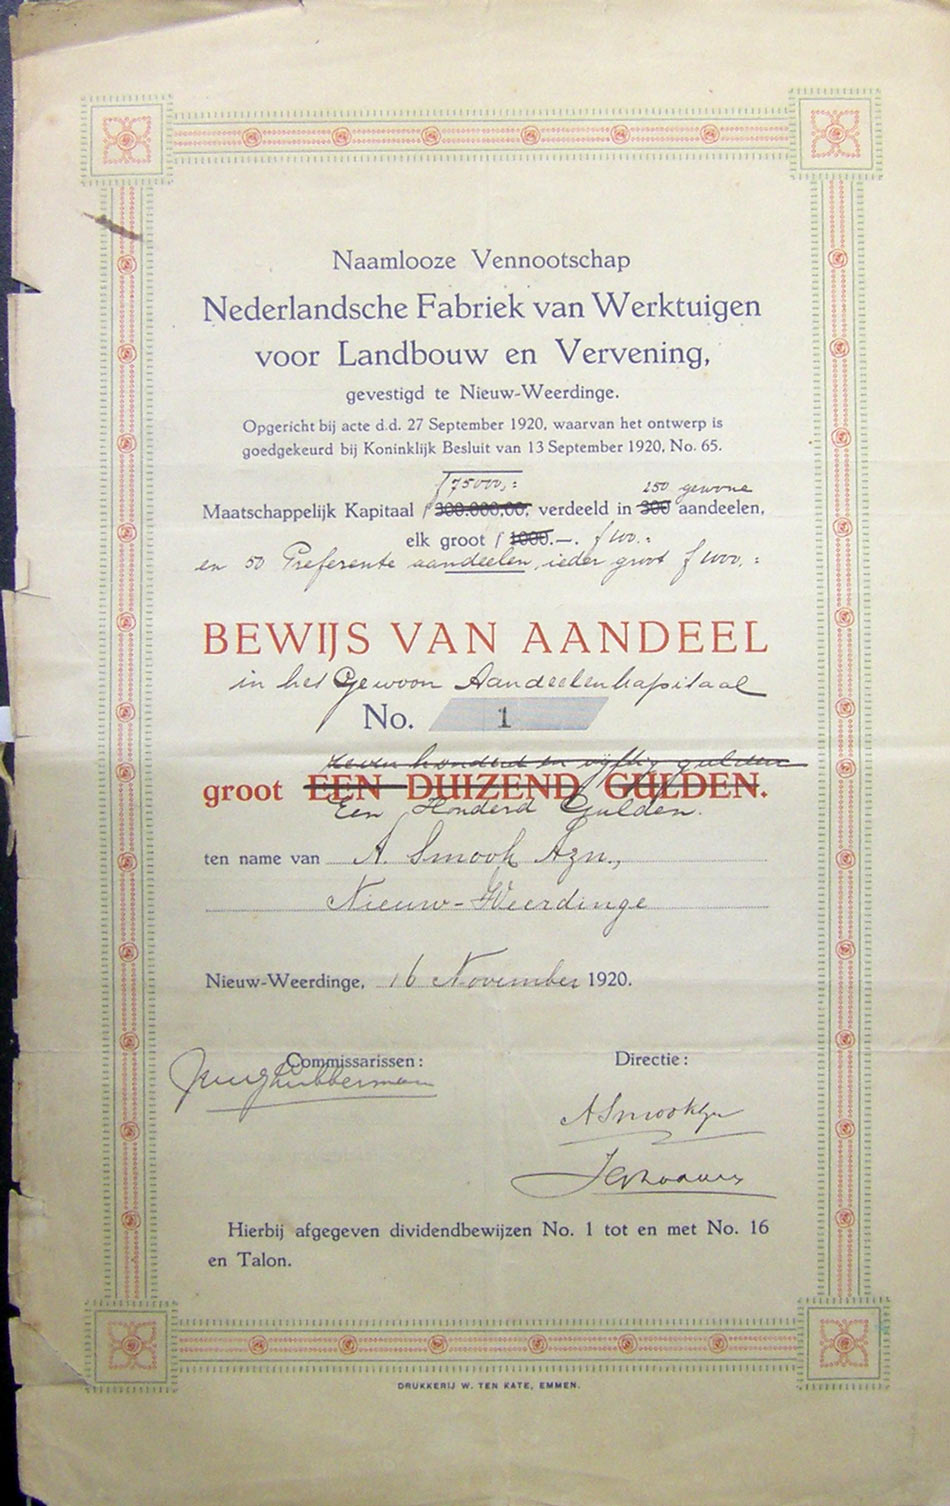 Naamlooze Vennootschap
Nederlandsche Fabriek van Werktuigen
voor Landbouw en Vervening,
gevestigd te Nieuw-Weerdinge.
Opgericht bij acte d.d. 27 September 1920, waarvan het ontwerp is
goedgekeurd bij Koninklijk Besluit van 13 September 1920, No. 65.
f 75000,: 250 gewone
Maatschappelijk Kapitaal f 300.000,00, verdeeld in 300 aandeelen,
elk groot f 1000.—. f 100.:
en 50 Preferente aandeelen, ieder groot f 1000,:
BEWIJS VAN AANDEEL
in het Gewoon Aandeelenkapitaal
No. 1
zeven honderd en vijftig gulden
groot EEN DUIZEND GULDEN.
Een Honderd Gulden.
ten name van A. Smook Azn.,
Nieuw-Weerdinge
Nieuw-Weerdinge, 16 November 1920.
Commissarissen: Directie:
A Smook
Hierbij afgegeven dividendbewijzen No. 1 tot en met No. 16
en Talon.
DRUKKERIJ W. TEN KATE, EMMEN.